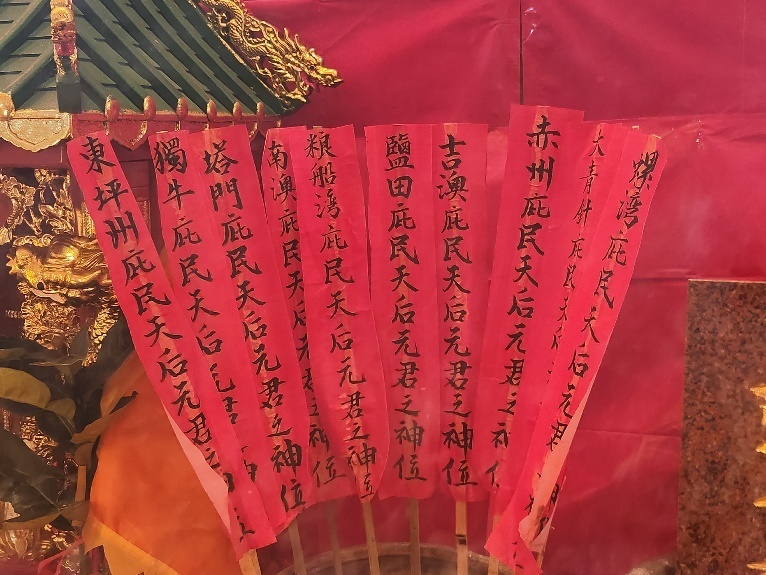 東坪州庇民天后元君之
獨牛庇民天后元君
塔門庇民天后元君之神位
南澳庇民天后元君之神
粮船湾庇民天后元君之神位
鹽田庇民天后元君之神位
吉澳庇民天后元君之神位
赤州庇民天后元君之神位
大青針庇民天后
螺湾庇民天后元君